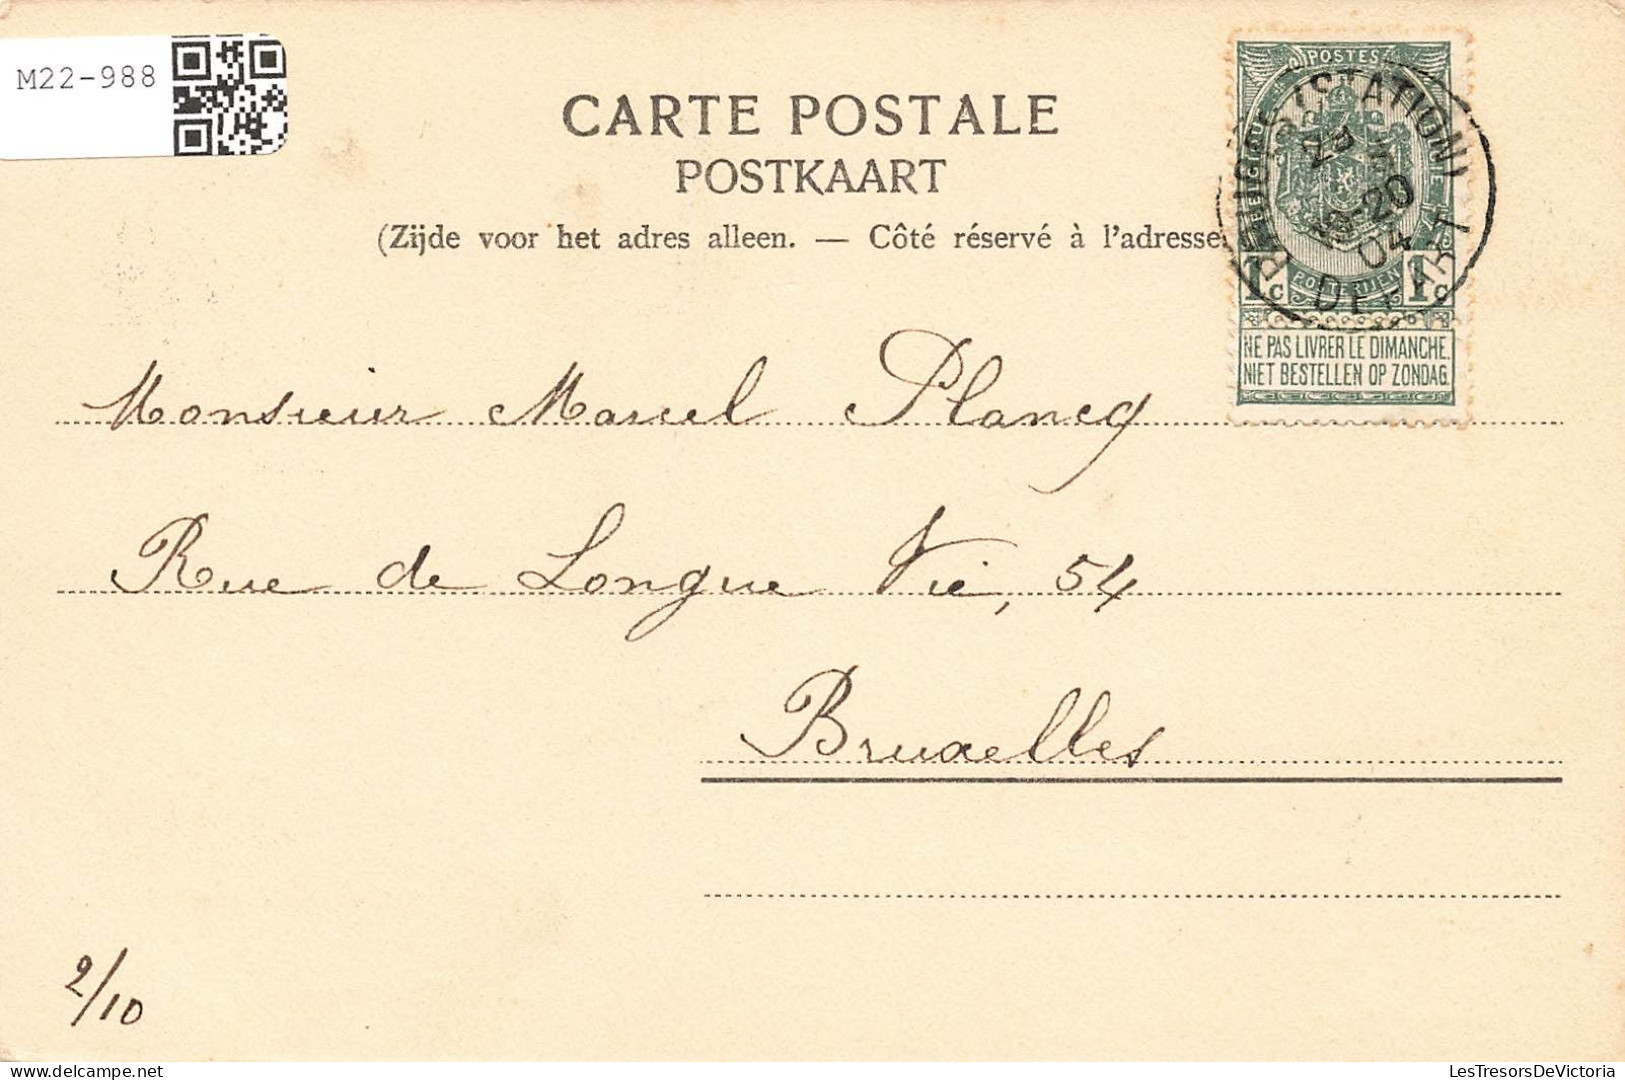 M22-988
CARTE POSTALE
POSTKAART
(Zijde voor het adres alleen. — Côté réservé à l'adresse
POSTES
BELGIQUE
POSTERIJEN
1c 1c
NE PAS LIVRER LE DIMANCHE.
NIET BESTELLEN OP ZONDAG
(STATION)
8-20
04
DEPART
Monsieur Marcel Plancq
Rue de Longue Vie, 54
Bruxelles
2/10
LesTresorsDeVictoria